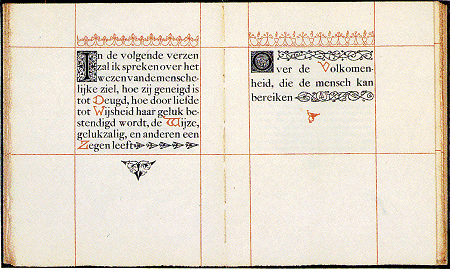 In de volgende verzen
zal ik spreken over het
wezen van de mensche-
lijke ziel, hoe zij geneigd is
tot Deugd, hoe door liefde
tot Wijsheid haar geluk be-
stendigd wordt, de Wijze,
gelukzalig, en anderen een
Zegen leeft
Over de Volkomen-
heid, die de mensch kan
bereiken